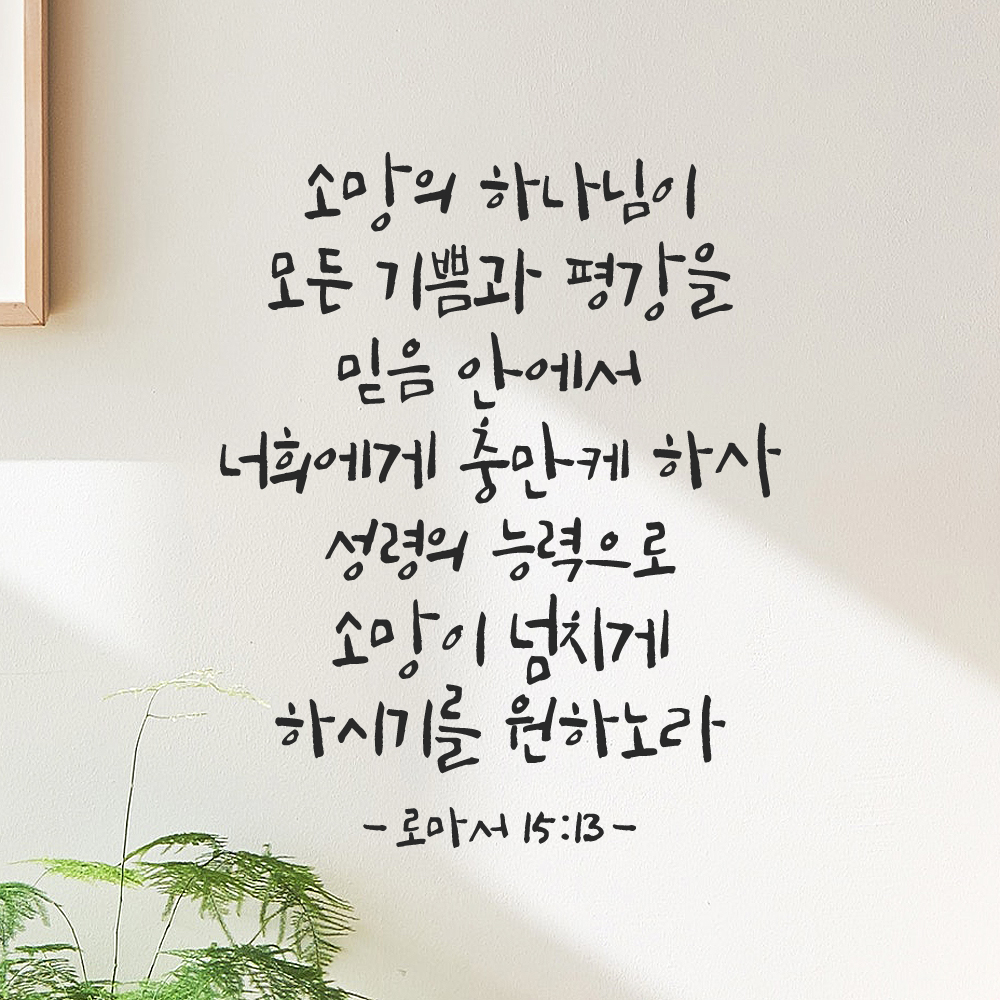 소망의 하나님이
모든 기쁨과 평강을
믿음 안에서
너희에게 충만케 하사
성령의 능력으로
소망이 넘치게
하시기를 원하노라
- 로마서 15:13 -